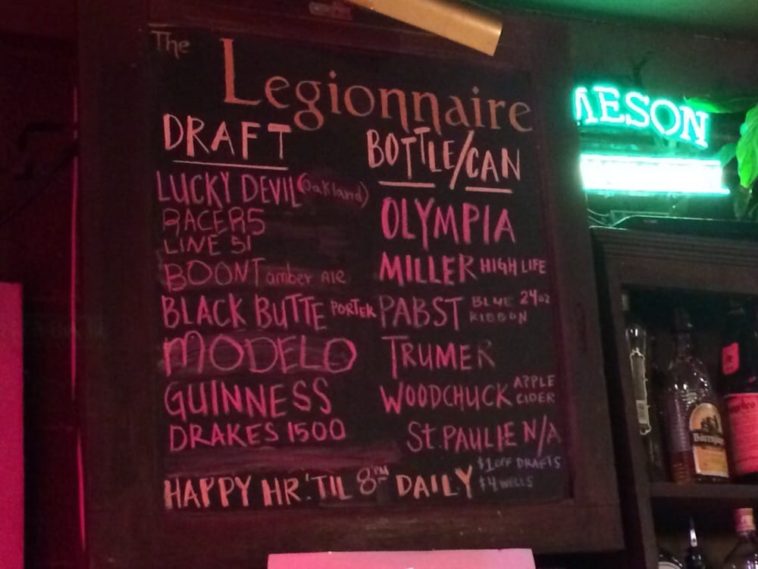 The
Legionnaire
DRAFT
LUCKY DEVIL (Oakland)
RACER 5
LINE 51
BOONT amber ALE
BLACK BUTTE PORTER
MODELO
GUINNESS
DRAKES 1500
BOTTLE/CAN
OLYMPIA
MILLER HIGH LIFE
PABST BLUE RIBBON 24oz
TRUMER
WOODCHUCK APPLE CIDER
ST. PAULIE N/A
HAPPY HR. 'TIL 8PM DAILY
$1 OFF DRAFTS
$4 WELLS
MESON